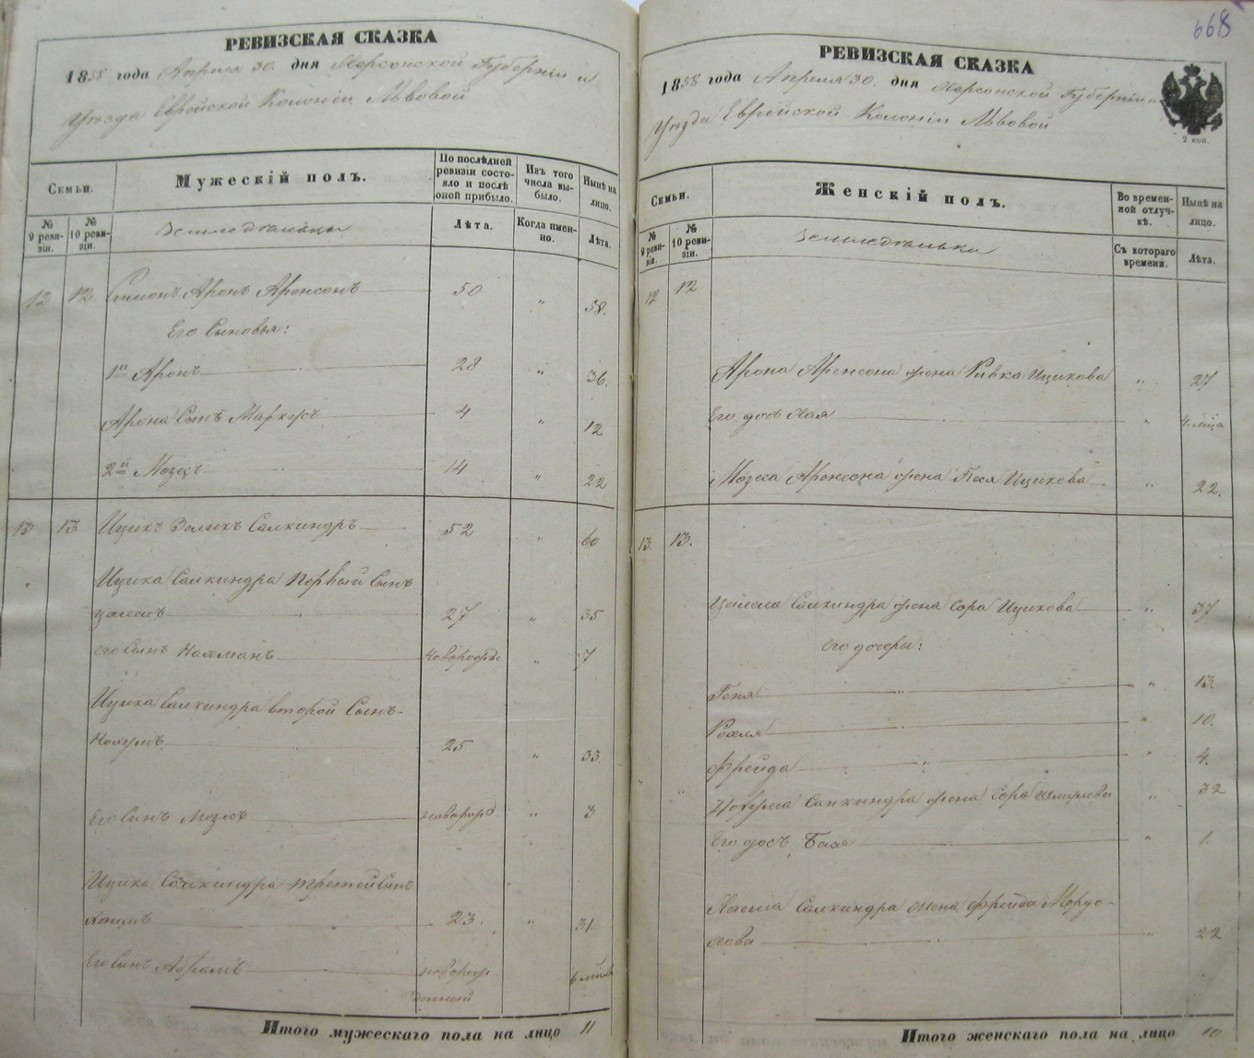 РЕВИЗСКАЯ СКАЗКА
1858 года Апреля 30. дня Херсонской Губернии и
Уезда Еврейской Колонии Львовой
Семьи.
Мужескій полъ.
По послѣдней ревизіи состояло и послѣ оной прибыло.
Изъ того числа выбыло.
Нынѣ на лицо.
№ 9 ревизіи.
№ 10 ревизіи.
Земледѣльцы
Лѣта.
Когда именно.
Лѣта.
12 12 Симонъ Аронъ Аронсонъ 50 " 58.
Его Сыновья:
1й Аронъ 28 " 36.
Арона Сынъ Маркусъ 4 " 12
2й Мозесъ 14 " 22
13 13 Ицикъ Зеликъ Салкиндръ 52 " 60
Ицика Салкиндра Первый Сынъ
27 " 35
его Сынъ Нахманъ новорожд " 7
Ицика Салкиндра второй Сынъ
Нохумъ 25 " 33.
Его Сынъ Мозесъ новорожд " 3
Ицика Салкиндра третей Сынъ
Хаимъ 23. " 31.
Его Сынъ Абрамъ новорож
денный
Итого мужескаго пола на лицо 11
668
РЕВИЗСКАЯ СКАЗКА
1858 года Апреля 30. дня Херсонской Губерніи и
Уезда Еврейской Колоніи Львовой
2 коп.
Семьи.
Женскій полъ.
Во временной отлучкѣ.
Нынѣ на лицо.
№ 9 ревизіи.
№ 10 ревизіи.
Съ котораго времени.
Лѣта.
12 12
Арона Аронсона жена Ривка Ицикова " 27
Его дочь Хая " 4. мѣца
Мозеса Аронсона жена Песя Ицикова " 22.
13 13.
Салкиндра жена Сора Ицикова " 37
его дочери:
Геня " 13.
Рохля " 10.
Фрейда " 4.
Нохума Салкиндра жена Сора " 32
Его дочь Бася " 1.
Хаима Салкиндра жена Фрейда Мордо-
хова " 22
Итого женскаго пола на лицо 10